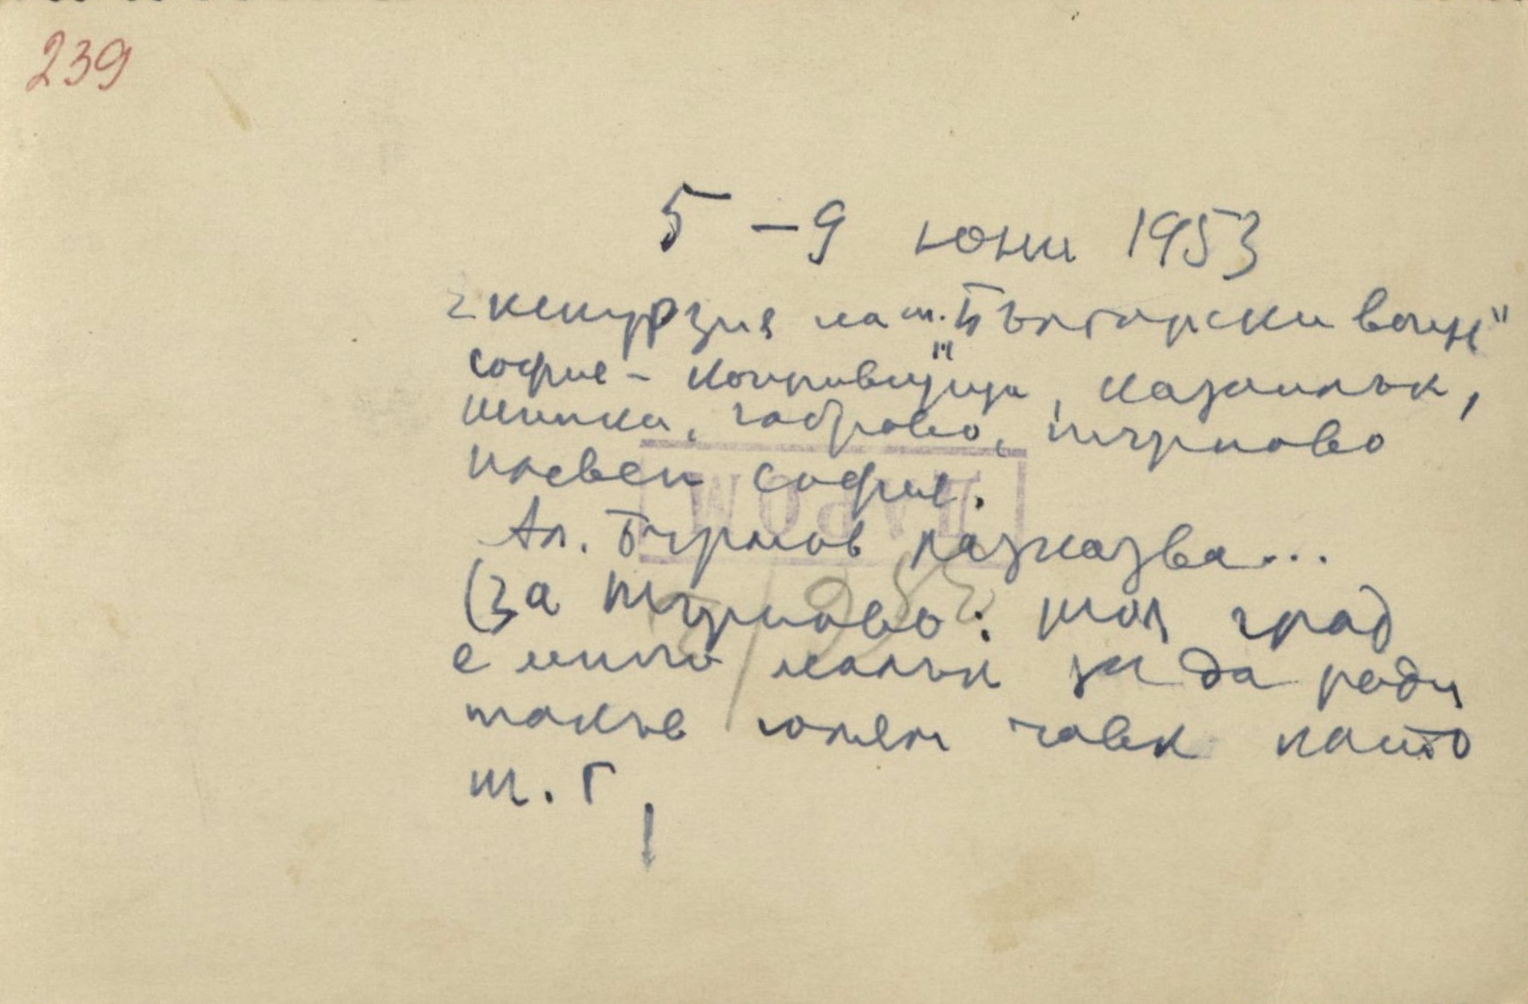 239
5 – 9 юни 1953
Екскурзия на т. Български воин"
София – Копривщица, Казанлък,
Шипка, Габрово, Търново
Плевен София.
Ал. Бурмов разказва...
(За Търново: тоя град
е много малък за да роди
такъв голям човек като
т. Г